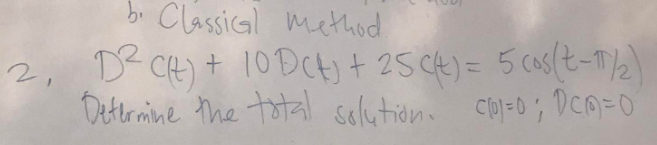 b. Classical method
2. D² C(t) + 10 D C(t) + 25 C(t) = 5 cos(t - π/2)
Determine the total solution. C(0)=0 ; DC(0)=0